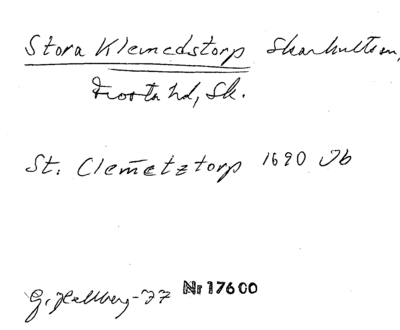 Stora Klemedstorp Skarhults sn,
Frosta hd, Sk.
St. Clemetztorp 1690 Jb
G. Hallberg -77 Nr 17600